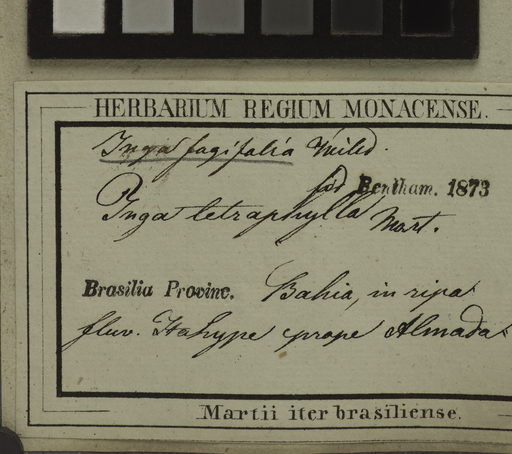 HERBARIUM REGIUM MONACENSE.
Inga fagifolia Willd.
fid Bentham. 1873
Inga tetraphylla Mart.
Brasilia Provinc. Bahia, in ripa
fluv. Itahype prope Almada
Martii iter brasiliense.